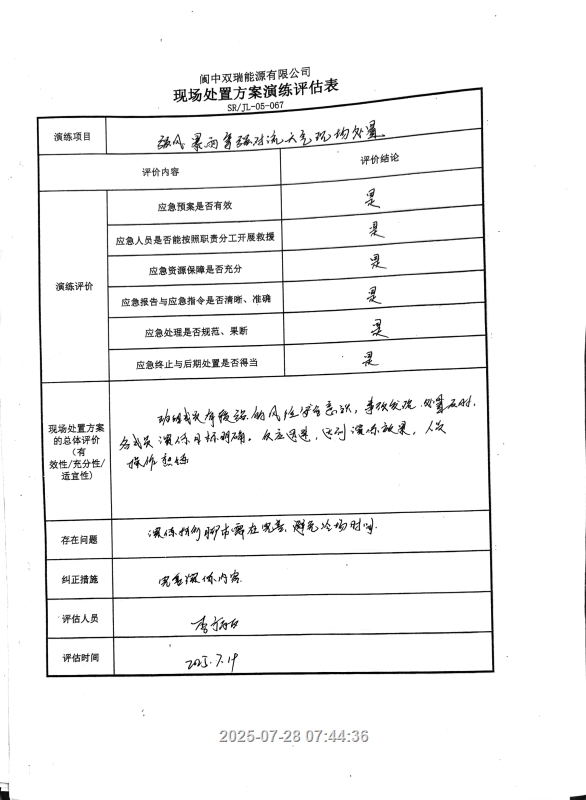 阆中双瑞能源有限公司
现场处置方案演练评估表
SR/JL-05-067
演练项目 强风暴雨等强对流天气现场处置
评价内容 评价结论
演练评价
应急预案是否有效 是
应急人员是否能按照职责分工开展救援 是
应急资源保障是否充分 是
应急报告与应急指令是否清晰、准确 是
应急处理是否规范、果断 是
应急终止与后期处置是否得当 是
现场处置方案
的总体评价
（有
效性/充分性/
适宜性）
有较强的风险安全意识，事故发现、处置及时，
各成员演练目标明确，反应迅速，达到演练效果，人员
操作熟练
存在问题 演练 脚本需在完善，避免冷场时间.
纠正措施 完善演练内容.
评估人员 李
评估时间 2025.7.19
2025-07-28 07:44:36